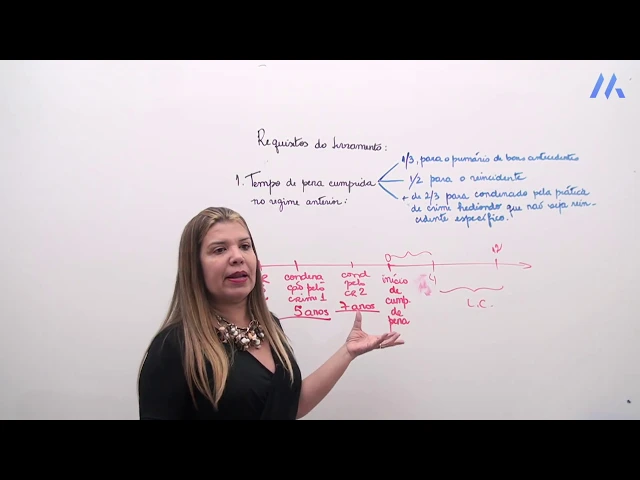 Requisitos do Livramento:
1. Tempo de pena cumprida
no regime anterior:
1/3, para o primário de bons antecedentes
1/2 para o reincidente
+ de 2/3 para condenado pela prática
de crime hediondo que não seja rein-
cidente específico.
0
12
4
condena
ção pelo
crime 1
5 anos
cond
pelo
CR 2
7 anos
início
de
cump.
de
pena
L.C.